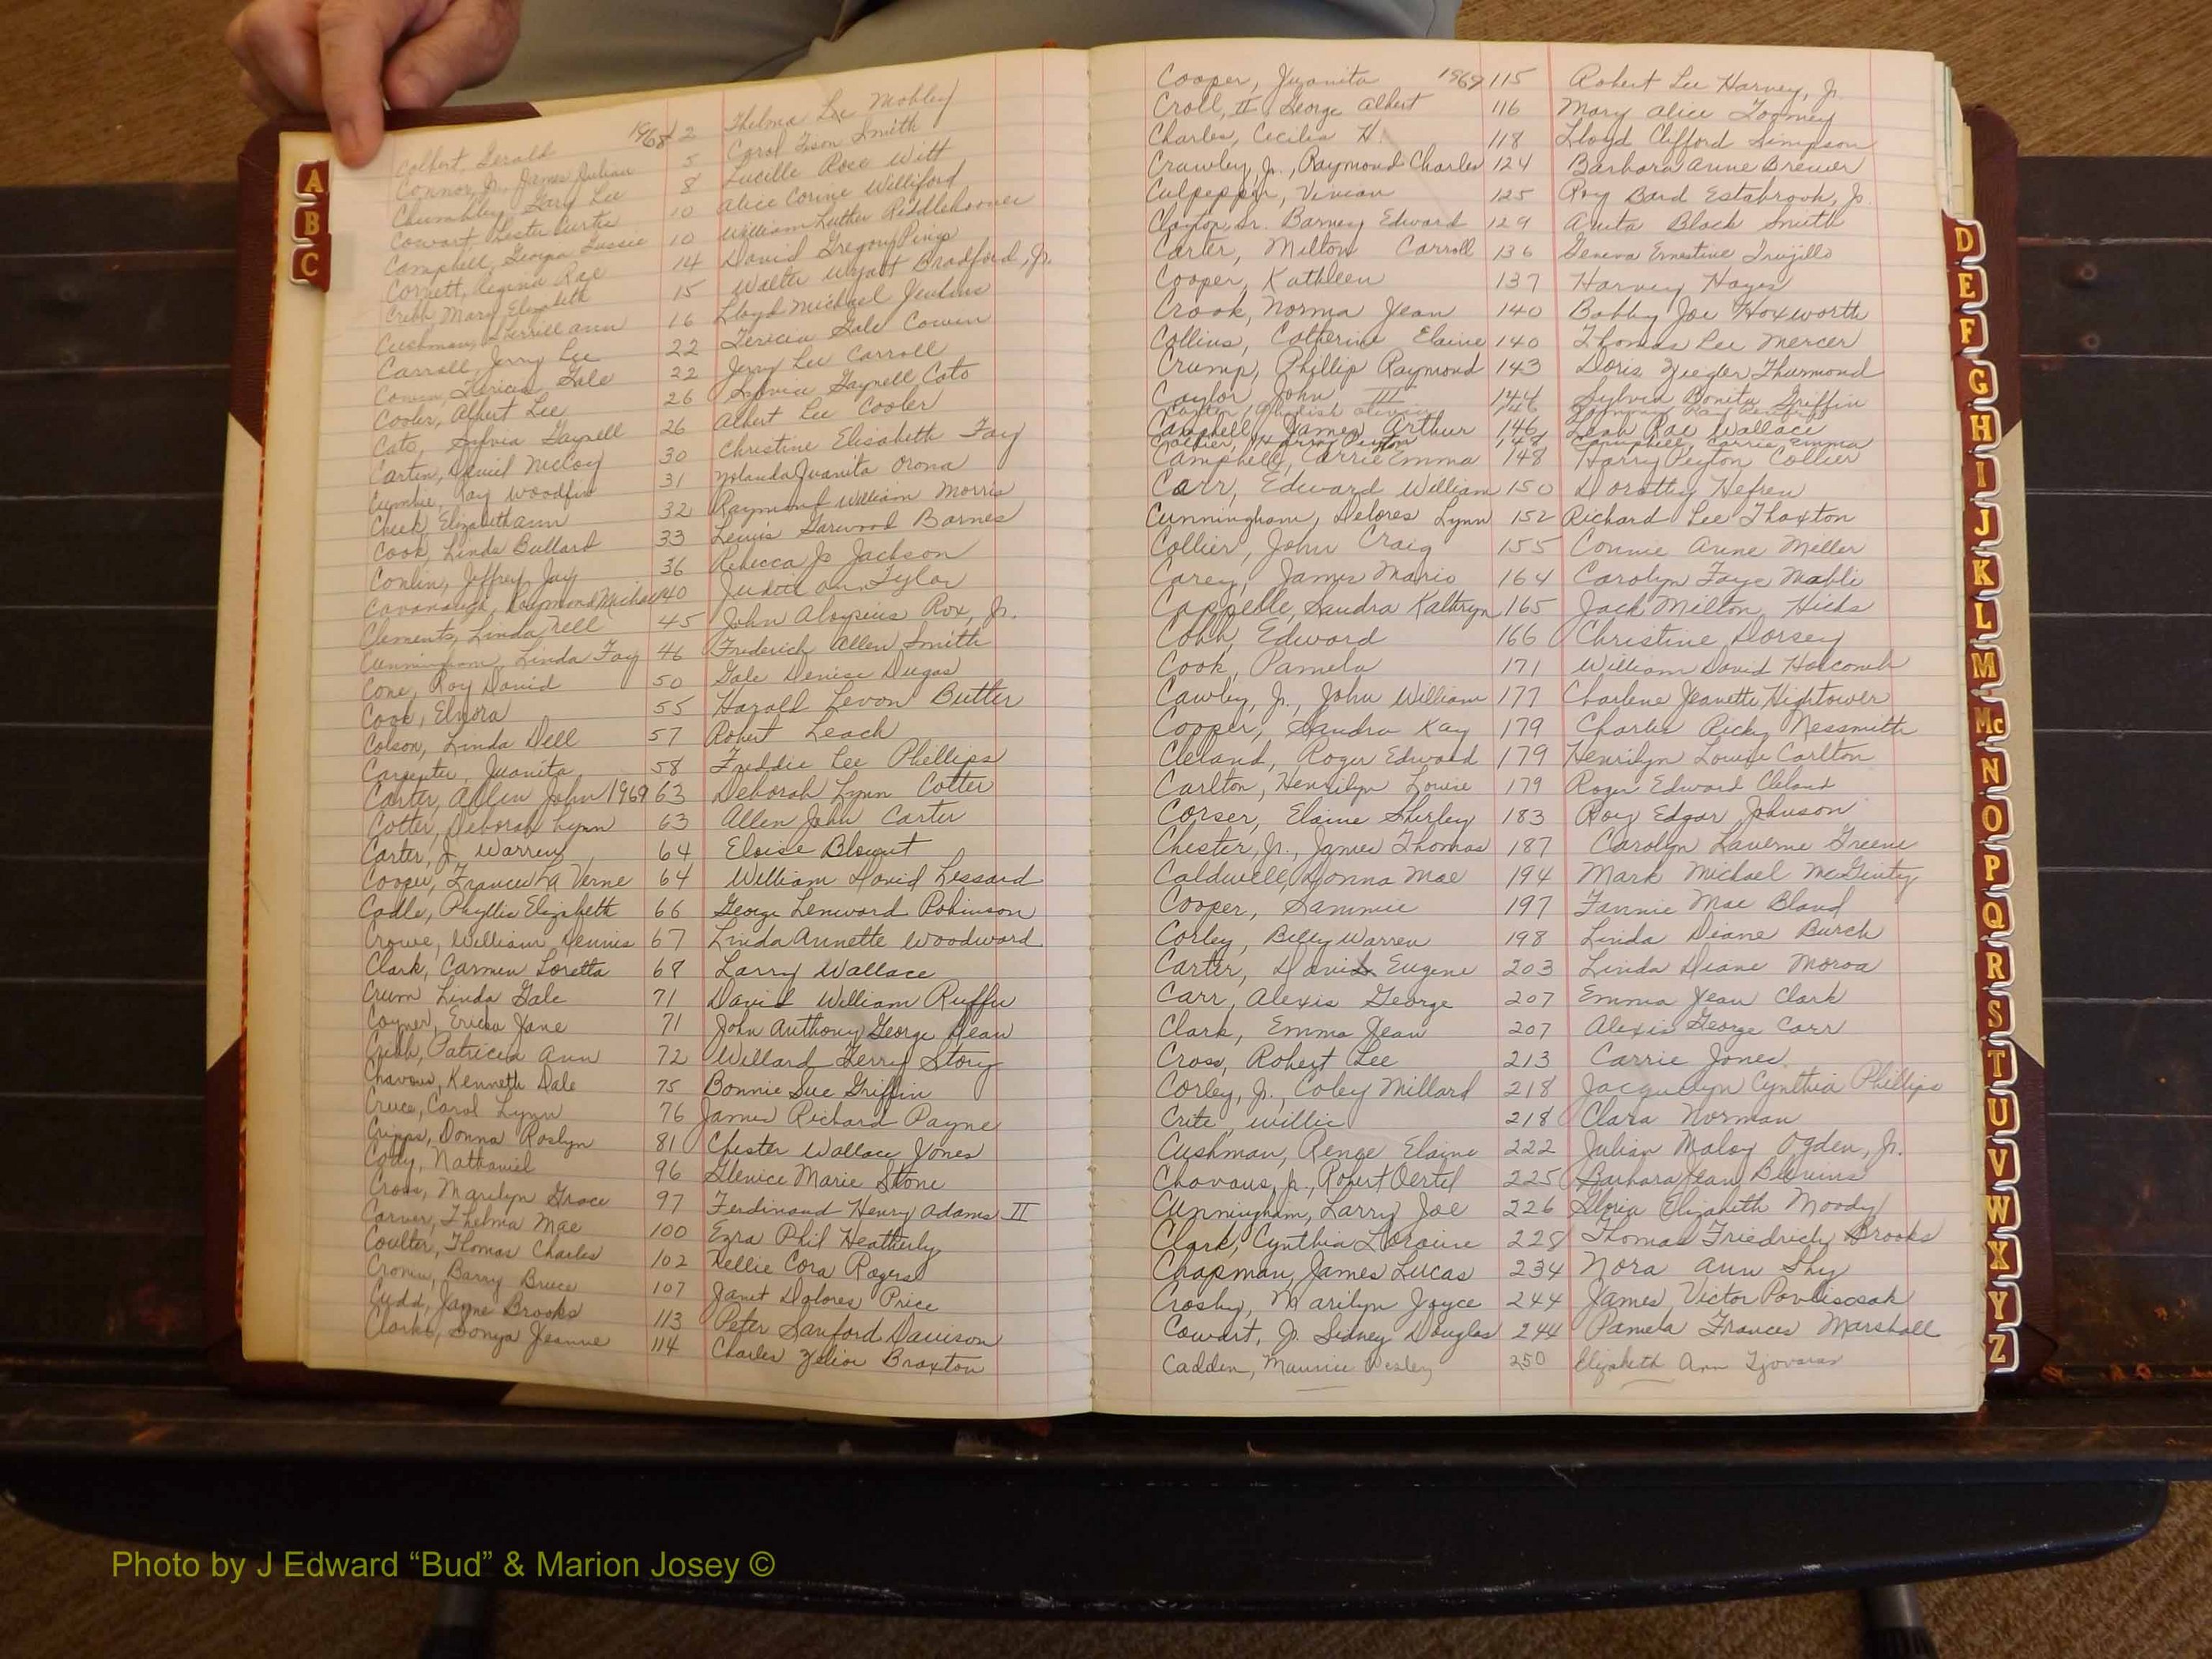 A
B
C
Colbert, Gerald 1968 2 Thelma Lee Mobley
Connor, Jr. James Julian 5 Carol Tison Smith
Chumbley, Gary Lee 8 Lucille Rose Witt
Cowart, Lester Curtis 10 Alice Corine Williford
Campbell, Georgia Gussie 10 William Luther Riddlehoover
Cornett, Regina Rae 14 David Gregory Pings
Cribb, Mary Elizabeth 15 Walter Wyatt Bradford, Jr.
Cushman, Sherrell Ann 16 Lloyd Michael Jenkins
Carroll, Jerry Lee 22 Tericia Gale Cowen
Cowen, Tericia Gale 22 Jerry Lee Carroll
Cooler, Albert Lee 26 Sylvia Gaynell Cato
Cato, Sylvia Gaynell 26 Albert Lee Cooler
Carter, Daniel McCoy 30 Christine Elizabeth Fay
Cumbie, Ray Woodfin 31 Yolanda Juanita Orona
Cheek, Elizabeth Ann 32 Raymond William Morris
Cook, Linda Bullard 33 Lewis Garwood Barnes
Conlin, Jeffrey Jay 36 Rebecca Jo Jackson
Cavanaugh, Raymond Michael 40 Judith Ann Tyler
Clements, Linda Nell 45 John Aloysius Rox, Jr.
Cunningham, Linda Fay 46 Frederich Allen Smith
Cone, Roy David 50 Gale Denise Dugas
Cook, Elnora 55 Harold Levon Butler
Colson, Linda Dell 57 Robert Leach
Carpenter, Juanita 58 Freddie Lee Phillips
Carter, Allen John 1969 63 Deborah Lynn Cotter
Cotter, Deborah Lynn 63 Allen John Carter
Carter, J. Warren 64 Eloise Blount
Cooper, Frances La Verne 64 William David Lessard
Cadle, Phyllis Elizabeth 66 George Lenward Robinson
Crowe, William Dennis 67 Linda Annette Woodward
Clark, Carmen Loretta 68 Larry Wallace
Crum Linda Gale 71 David William Ruffin
Coyner, Ericka Jane 71 John Anthony George Dean
Cribb, Patricia Ann 72 Willard Terry Story
Chavous, Kenneth Dale 75 Bonnie Sue Griffin
Cruce, Carol Lynn 76 James Richard Payne
Cripps, Donna Roslyn 81 Chester Wallace Jones
Cody, Nathaniel 96 Glenice Marie Stone
Cross, Marilyn Grace 97 Ferdinand Henry Adams II
Carver, Thelma Mae 100 Ezra Phil Heatherly
Coulter, Thomas Charles 102 Nellie Cora Rogers
Cronin, Barry Bruce 107 Janet Dolores Price
Cudd, Jayne Brooks 113 Peter Sanford Davison
Clarke, Sonja Jeanne 114 Charles Braxton
Cooper, Juanita 1969 115 Robert Lee Harvey, Jr.
Croll, II George Albert 116 Mary Alice Toomey
Charles, Cecilia H. 118 Lloyd Clifford Simpson
Crawley, Jr., Raymond Charles 124 Barbara Anne Brewer
Culpepper, Vivian 125 Roy Bard Estabrook, Jr.
Clayton, Sr. Barney Edward 129 Anita Black Smith
Carter, Milton Carroll 136 Geneva Ernestine Trujillo
Cooper, Kathleen 137 Harvey Hayes
Crook, Norma Jean 140 Bobby Joe Hoxworth
Collins, Catherine Elaine 140 Thomas Lee Mercer
Crump, Phillip Raymond 143 Doris Ziegler Thurmond
Caylor, John III 144 Sylvia Bonita Griffin
146
Campbell, James Arthur 146 Leah Rae Wallace
Collier, Harry Peyton 148 Campbell, Carrie Emma
Campbell, Carrie Emma 148 Harry Peyton Collier
Carr, Edward William 150 Dorothy Hefren
Cunningham, Delores Lynn 152 Richard Lee Thaxton
Collier, John Craig 155 Connie Anne Miller
Carey, James Mario 164 Carolyn Faye Mable
Cappelle, Sandra Kathryn 165 Jack Milton Hicks
Cobb, Edward 166 Christine Dorsey
Cook, Pamela 171 William David Holcomb
Cawley, Jr., John William 177 Charlene Jeanette Hightower
Cooper, Sandra Kay 179 Charles Ricky Nessmith
Cleland, Roger Edward 179 Henrilyn Louise Carlton
Carlton, Henrilyn Louise 179 Roger Edward Cleland
Corser, Elaine Shirley 183 Roy Edgar Johnson
Chester, Jr., James Thomas 187 Carolyn Laverne Greene
Caldwell, Donna Mae 194 Mark Michael McGinty
Cooper, Sammie 197 Fannie Mae Bland
Corley, Billy Warren 198 Linda Diane Burch
Carter, David Eugene 203 Linda Diane Moroa
Carr, Alexis George 207 Emma Jean Clark
Clark, Emma Jean 207 Alexis George Carr
Cross, Robert Lee 213 Carrie Jones
Corley, Jr., Coley Millard 218 Jacquelyn Cynthia Phillips
Crite, Willie 218 Clara Norman
Cushman, Renee Elaine 222 Julian Maloy Ogden, Jr.
Chavous, Jr., Robert Oertel 225 Barbara Jean Blevins
Cunningham, Larry Joe 226 Gloria Elizabeth Moody
Clark, Cynthia Loraine 228 Thomas Friedrich Brooks
Chapman, James Lucas 234 Nora Ann Shy
Crosby, Marilyn Joyce 244 James Victor
Cowart, Jr. Sidney Douglas 244 Pamela Frances Marshall
Cadden, Maurice Wesley 250 Elizabeth Ann
D
E
F
G
H
I
J
K
L
M
Mc
N
O
P
Q
R
S
T
U
V
W
X
Y
Z
Photo by J Edward “Bud” & Marion Josey ©